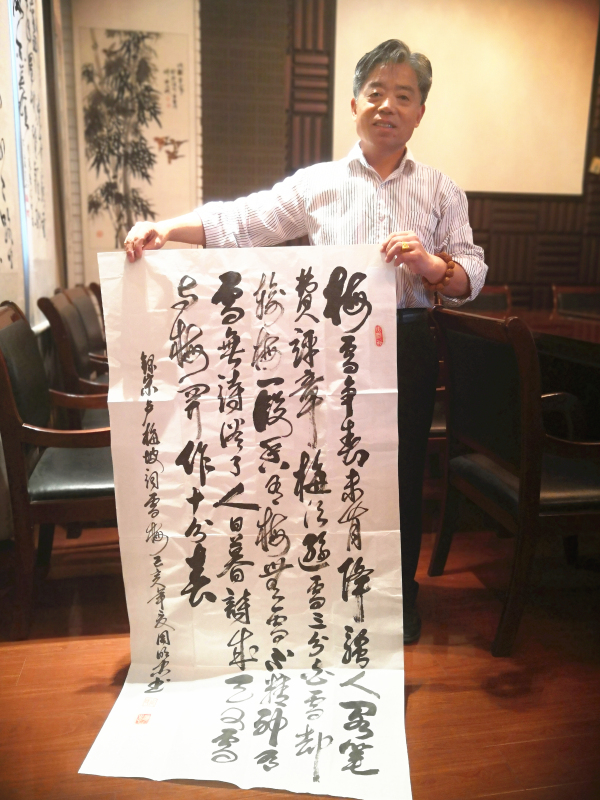 梅雪争春未肯降騷人阁笔
費評章梅须遜雪三分白雪却
输梅一段香有梅無雪不精神有
雪無詩俗了人日暮詩成天又雪
与梅并作十分春
録宋卢梅坡词雪梅己亥年夏周书